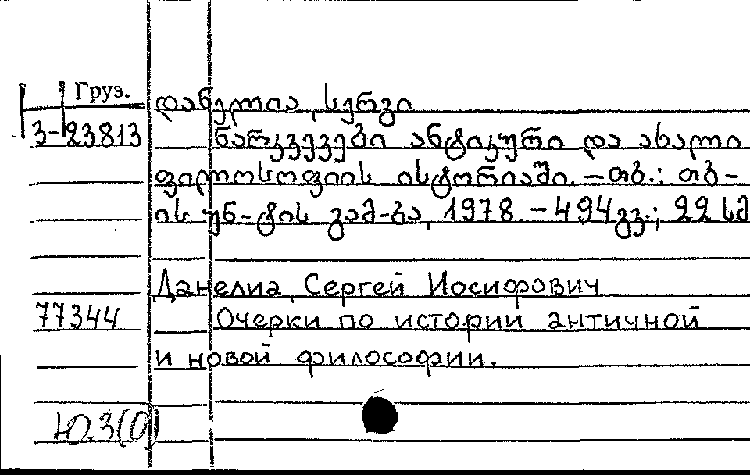 Груз. დანელია, სერგი
3-23813 ნარკვევები ანტიკური და ახალი
ფილოსოფიის ისტორიაში. – თბ.: თბ-
ის უნ-ტის გამ-ბა, 1978. – 494გვ.; 22 სმ
Данелиа, Сергей Иосифович
77344 Очерки по истории античной
и новой философии.
Ю3(0)